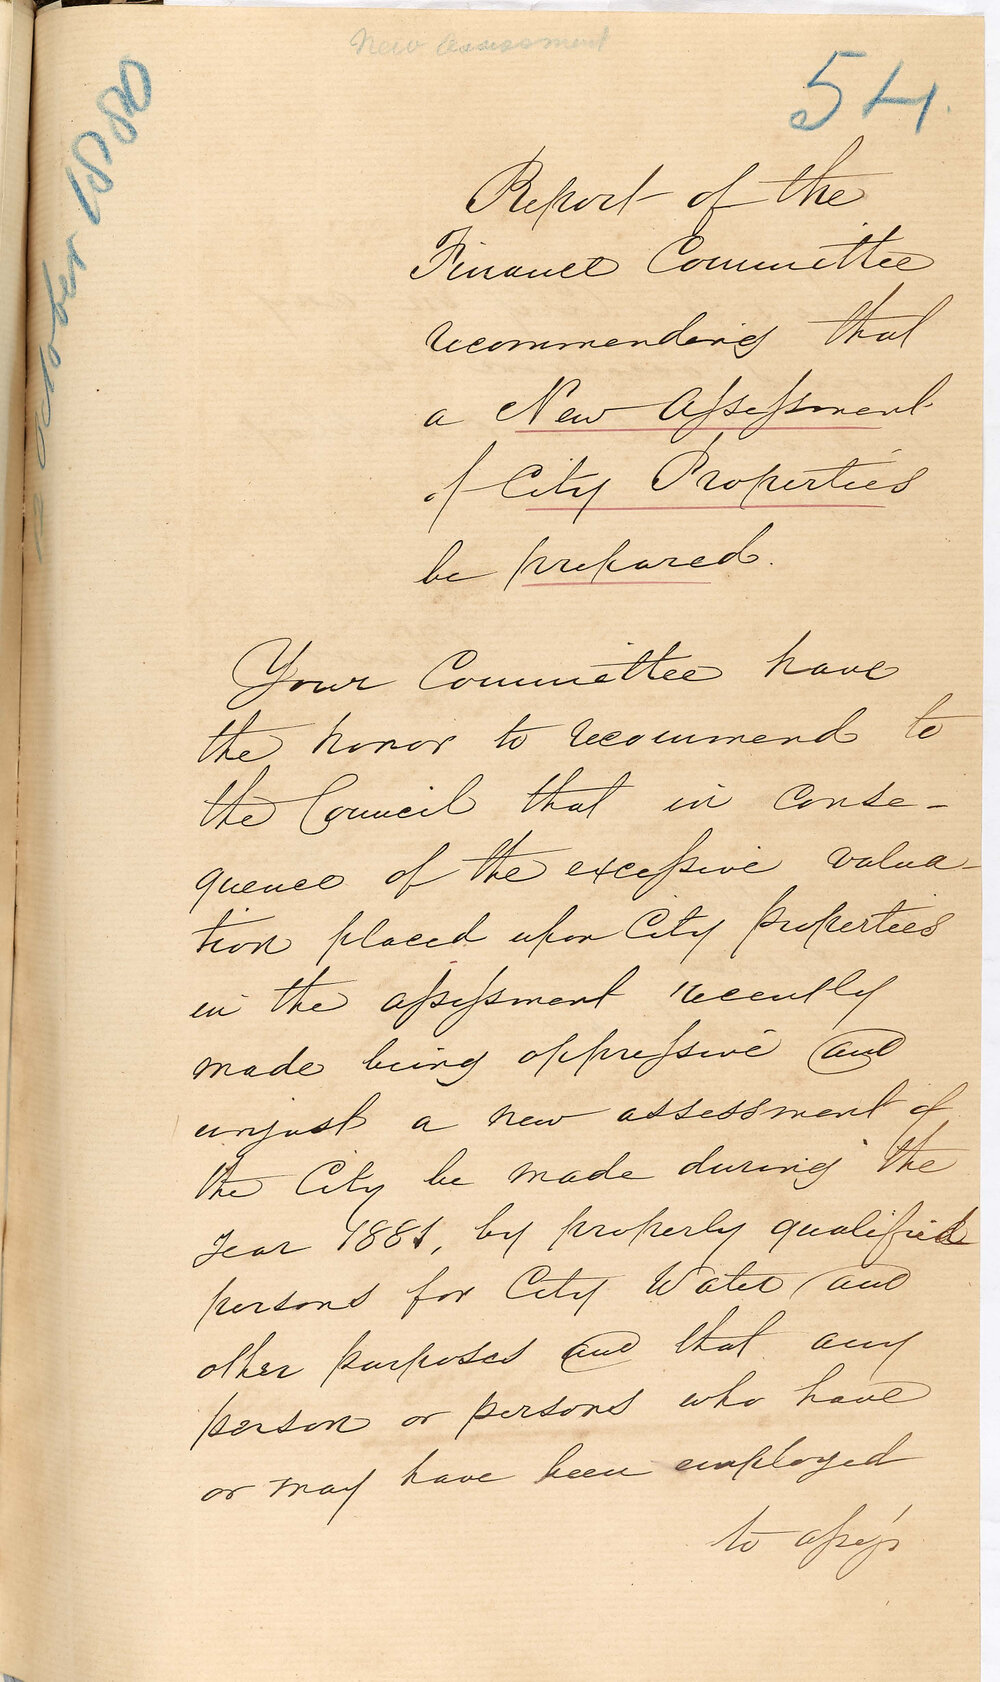 New Assessment
54.
October 1880
Report of the
Finance Committee
recommending that
a New Assessment
of City Properties
be prepared.
Your Committee have
the honor to recommend to
the Council that in conse-
quence of the excessive valua-
tion placed upon City properties
in the assessment recently
made being oppressive and
unjust a new assessment of
the City be made during the
year 1881, by properly qualified
persons for City Water and
other purposes and that any
person or persons who have
or may have been employed
to assess